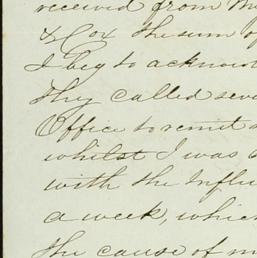 received from the
& Cox the sum of
I beg to acknow
they called seve
Office to remit
whilst I was
with the Influ
a week, which
the cause of m